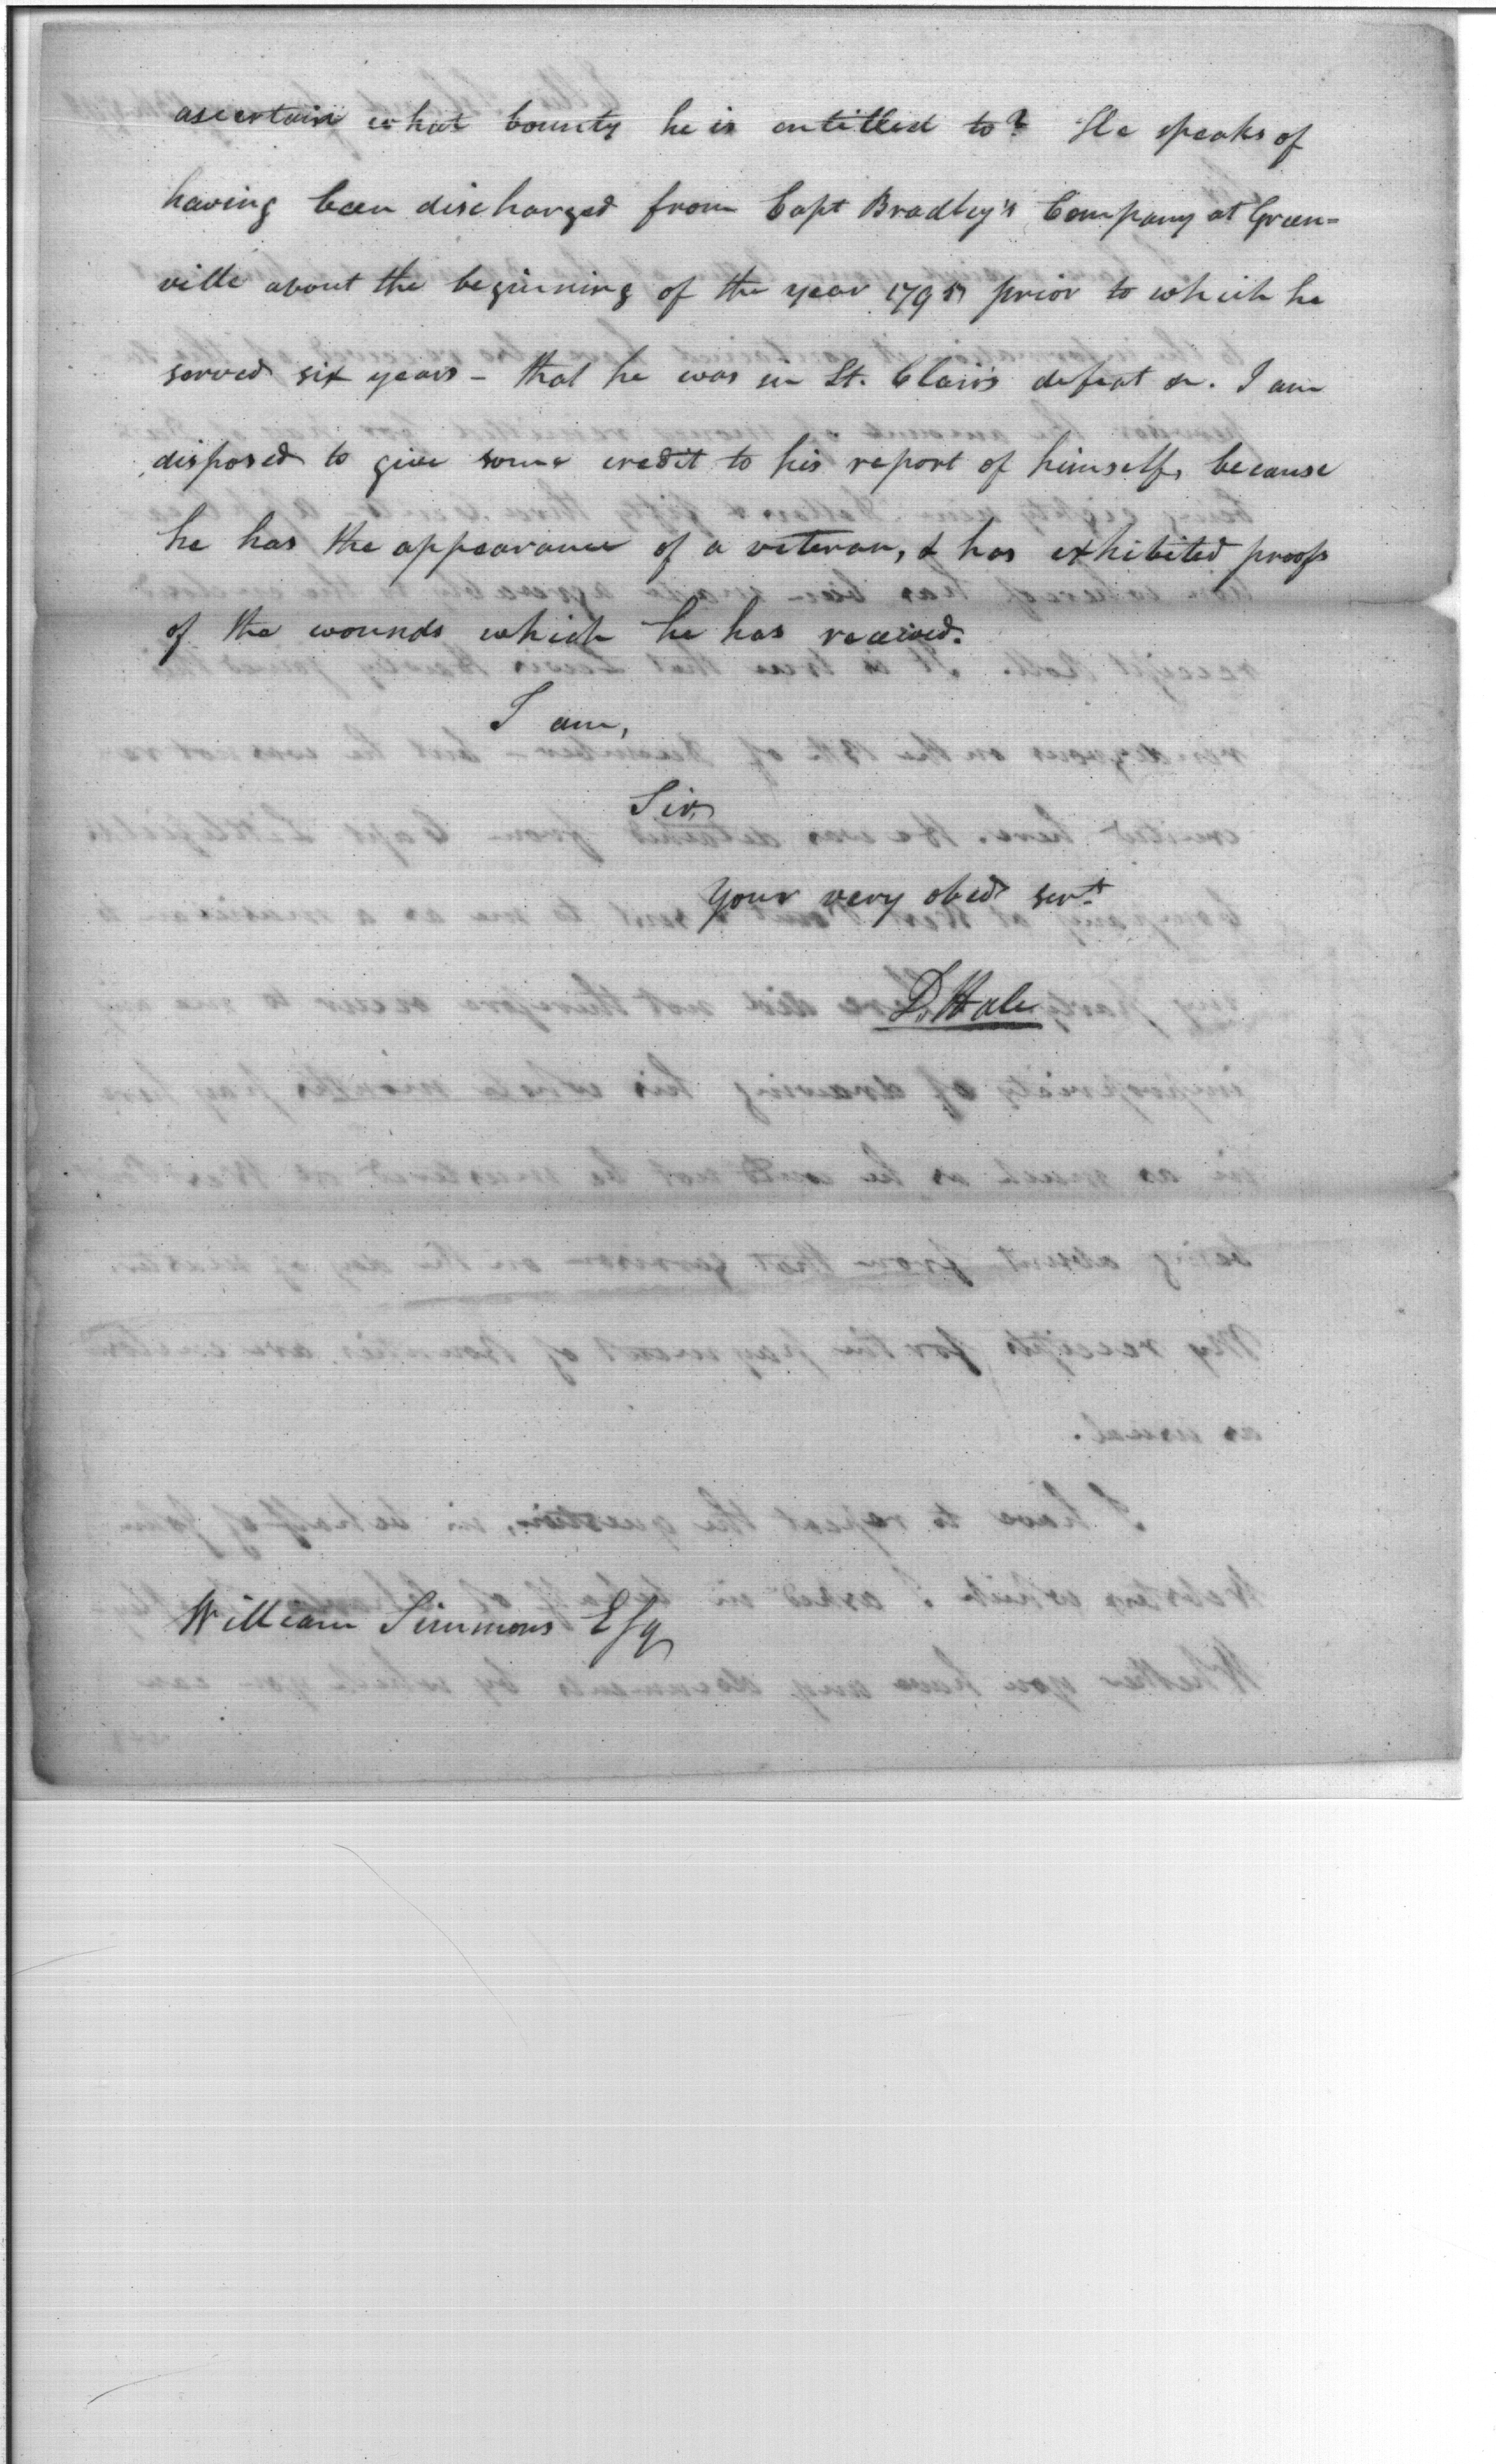 ascertain what bounty he is entitled to? He speaks of
having been discharged from Capt Bradley's Company at Green=
ville about the beginning of the year 1795 prior to which he
served six years - that he was in St. Clair's defeat &c. I am
disposed to give some credit to his report of himself, because
he has the appearance of a veteran, & has exhibited proofs
of the wounds which he has received.
I am,
Sir,
Your very obed servt
D. Hale
William Simmons Esq